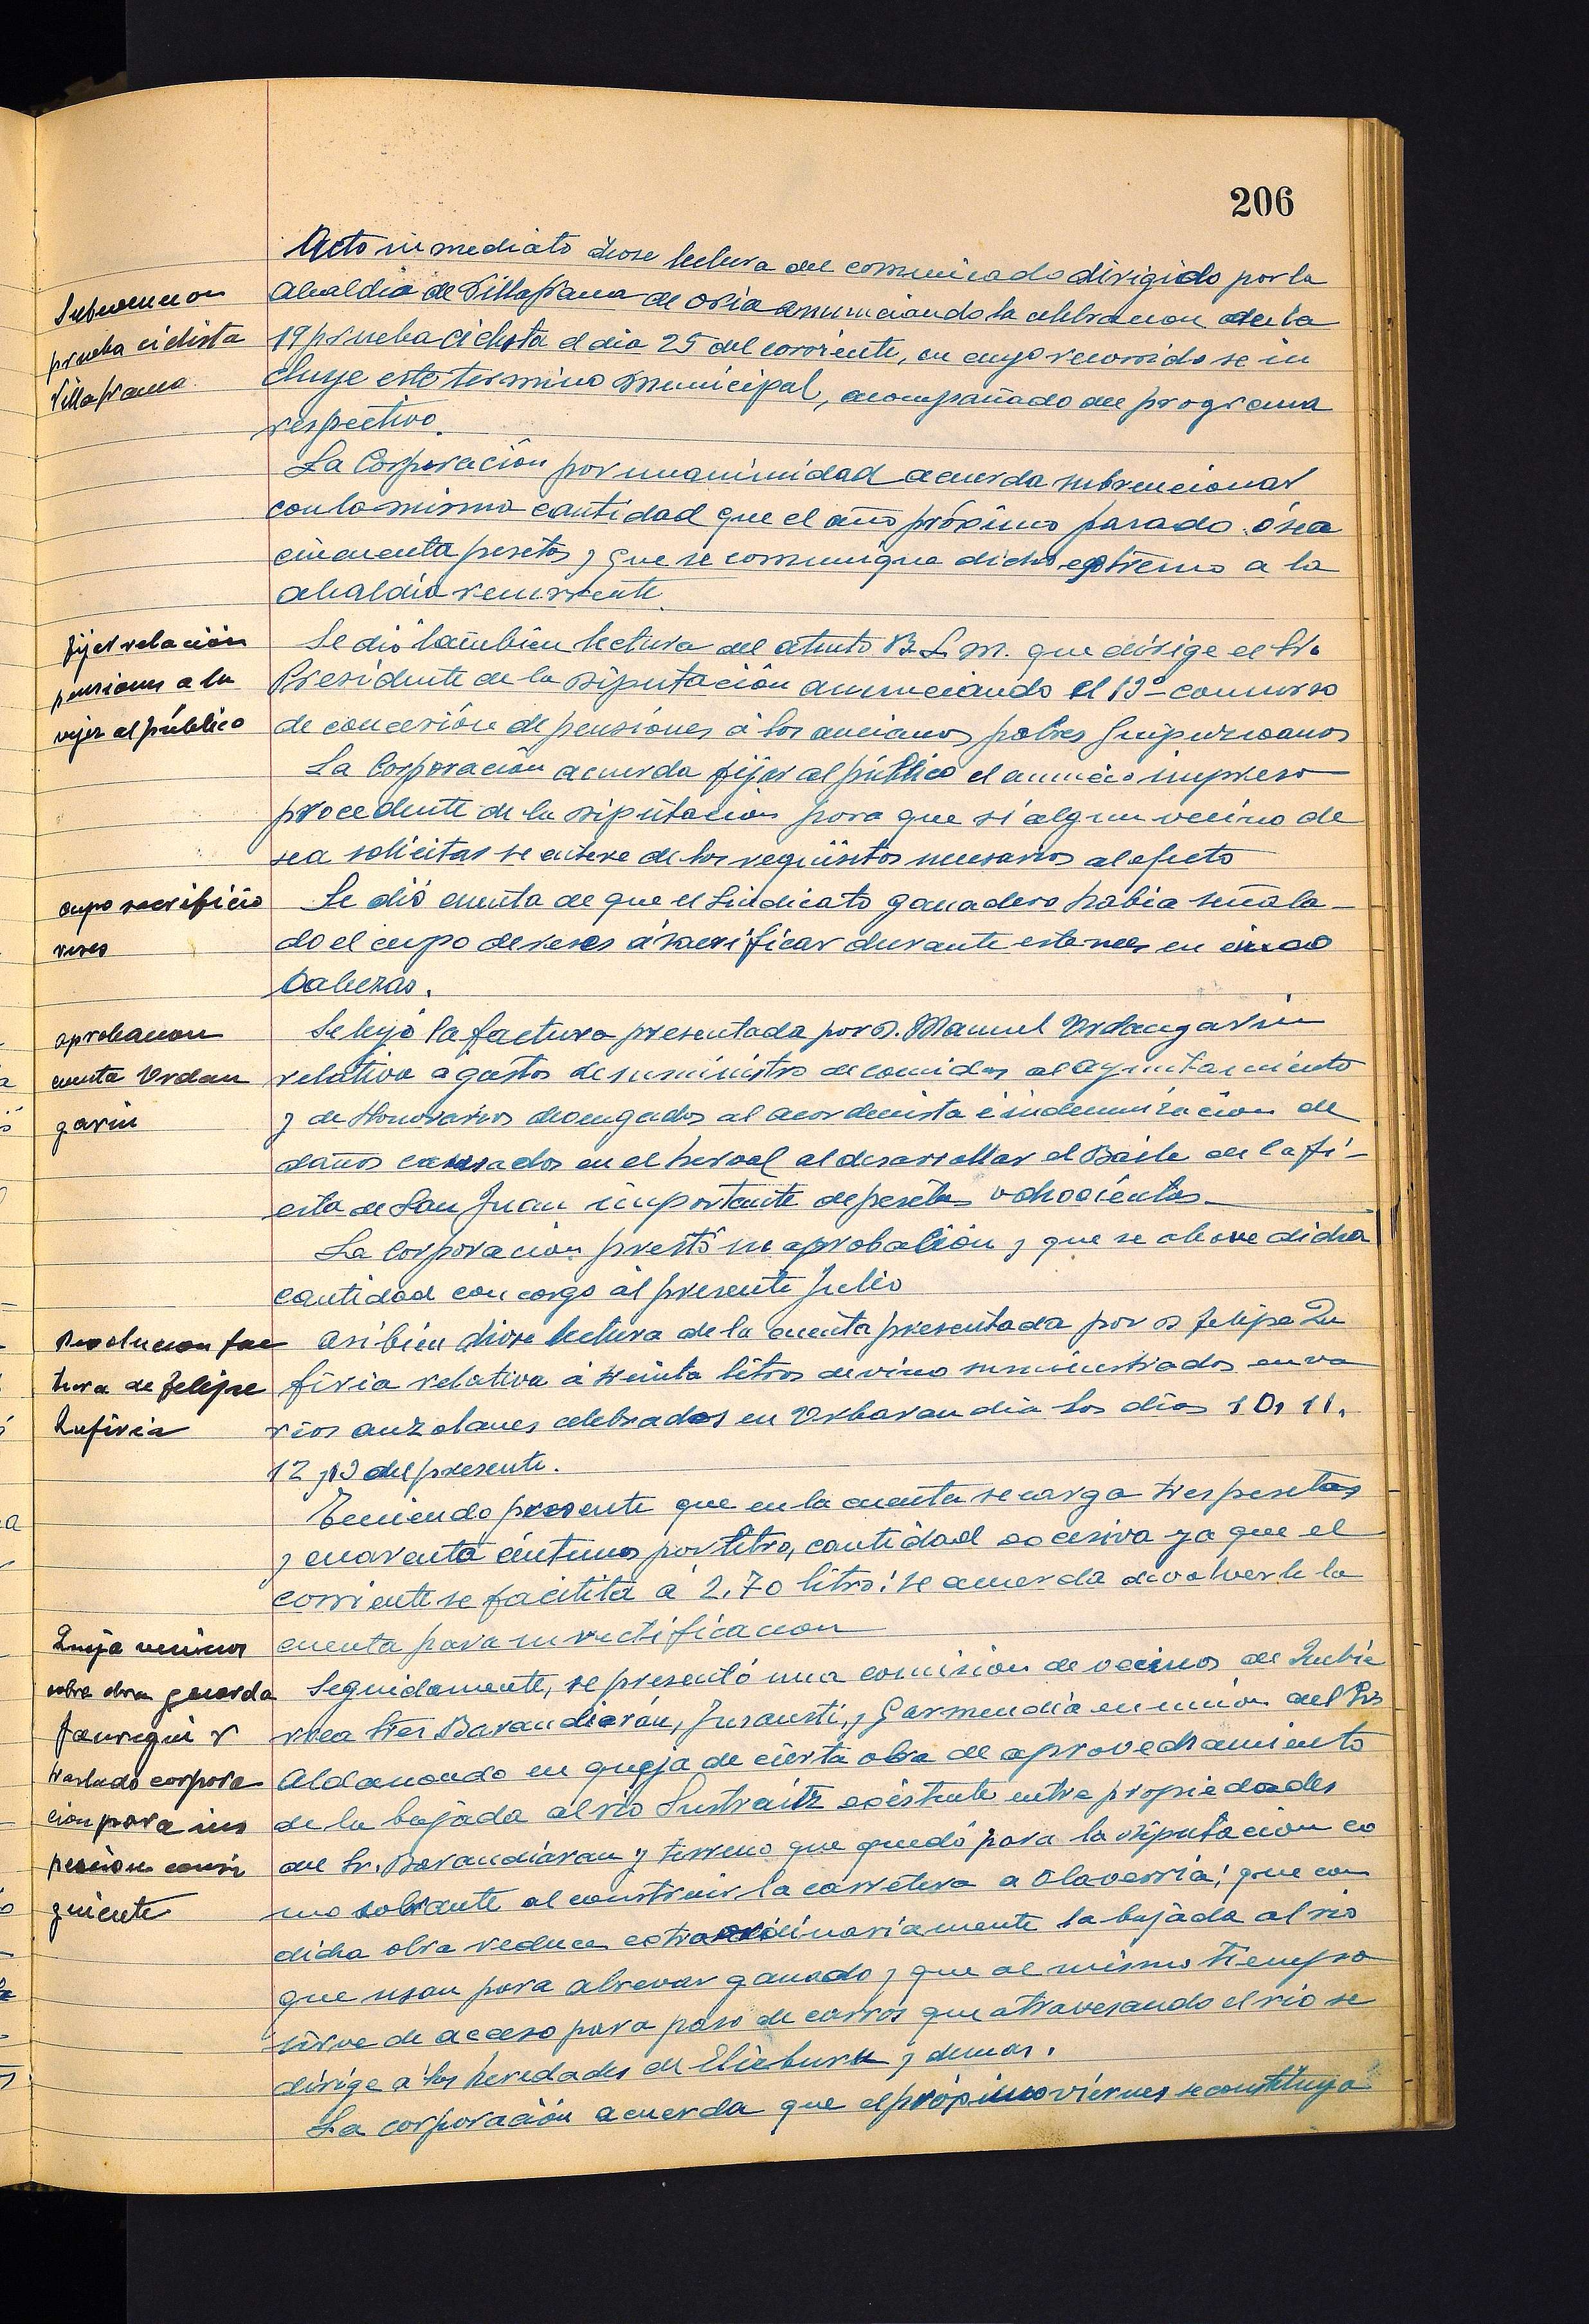 206
Subvencion
prueba ciclista
Villafranca
Acto inmediato diose lectura del comunicado dirigido por la
Alcaldia de Villafranca de Oria anunciando la celebracion de la
19 prueba ciclista el dia 25 del corriente, en cuyo recorrido se in
cluye este termino municipal, acompañado del programa
respectivo.
La Corporación por unanimidad acuerda subvencionar
con la misma cantidad que el año próximo pasado ó sea
cincuenta pesetas y que se comunique dicho extremo a la
alcaldia recurrente.
Fijar relación
pensiones a la
vejez al público
Se dió tambien lectura del atento B. L. M. que dirige el Sr.
Presidente de la Diputación anunciando el 13º concurso
de concesión de pensiónes á los ancianos pobres Guipuzcoanos
La Corporación acuerda fijar al público el anuncio impreso
procedente de la Diputación para que si algun vecino de
sea solicitar se entere de los requisitos necesarios al efecto
cupo sacrificio
reses
Se dió cuenta de que el Sindicato ganadero habia señala-
do el cupo de reses á sacrificar durante este mes en cinco
Cabezas.
aprobacion
cuenta Urdan
garin
Se leyó la factura presentada por D. Manuel Urdangarin
relativa a gastos de suministro de comidas al Ayuntamiento
y de Honorarios devengados al acordeonista é indemnización de
daños causados en el herval al desarrollar el Baile de la fi-
esta de San Juan importante de pesetas ochocientas.
La Corporacion prestó su aprobación y que se abone dicha
cantidad con cargo al presente Julio
Devolucion fac
tura de Felipe
Zufiria
Asi bien diose lectura de la cuenta presentada por D Felipe Zu
firia relativa á treinta litros de vino suministrados en va
rios auzolanes celebrados en Urbarandia los dias 10, 11,
12 y 13 del presente.
Teniendo presente que en la cuenta se carga tres pesetas
y cuarenta céntimos por litro, cantidad excesiva ya que el
corriente se facilita á 2,70 litro: se acuerda devolverle la
cuenta para su rectificacion
Queja vecinos
sobre obra guarda
Jauregui y
traslado corpora
cion para ins
pección consi
guiente
Seguidamente, se presentó una comision de vecinos de Zubie
rrea Sres Barandiarán, Insausti, y Garmendia en union del Pbs
Aldanondo en queja de cierta obra de aprovechamiento
de la bajada al rio Sustraitz existente entre propiedades
del Sr. Barandiáran y terreno que quedó para la Diputacion co
mo sobrante al construir la carretera a Olaverria: que con
dicha obra reduce extraordinariamente la bajada al rio
que usan para abrevar ganado y que al mismo tiempo
sirve de acceso para paso de carros que atravesando el rio se
dirige á las heredades de y demas.
La corporación acuerda que el próximo viernes se constituya